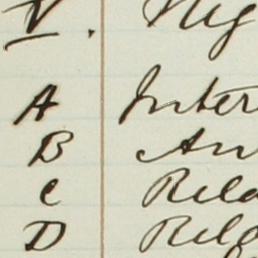 V. Nig
A Inter
B An
C Rela
D Rela